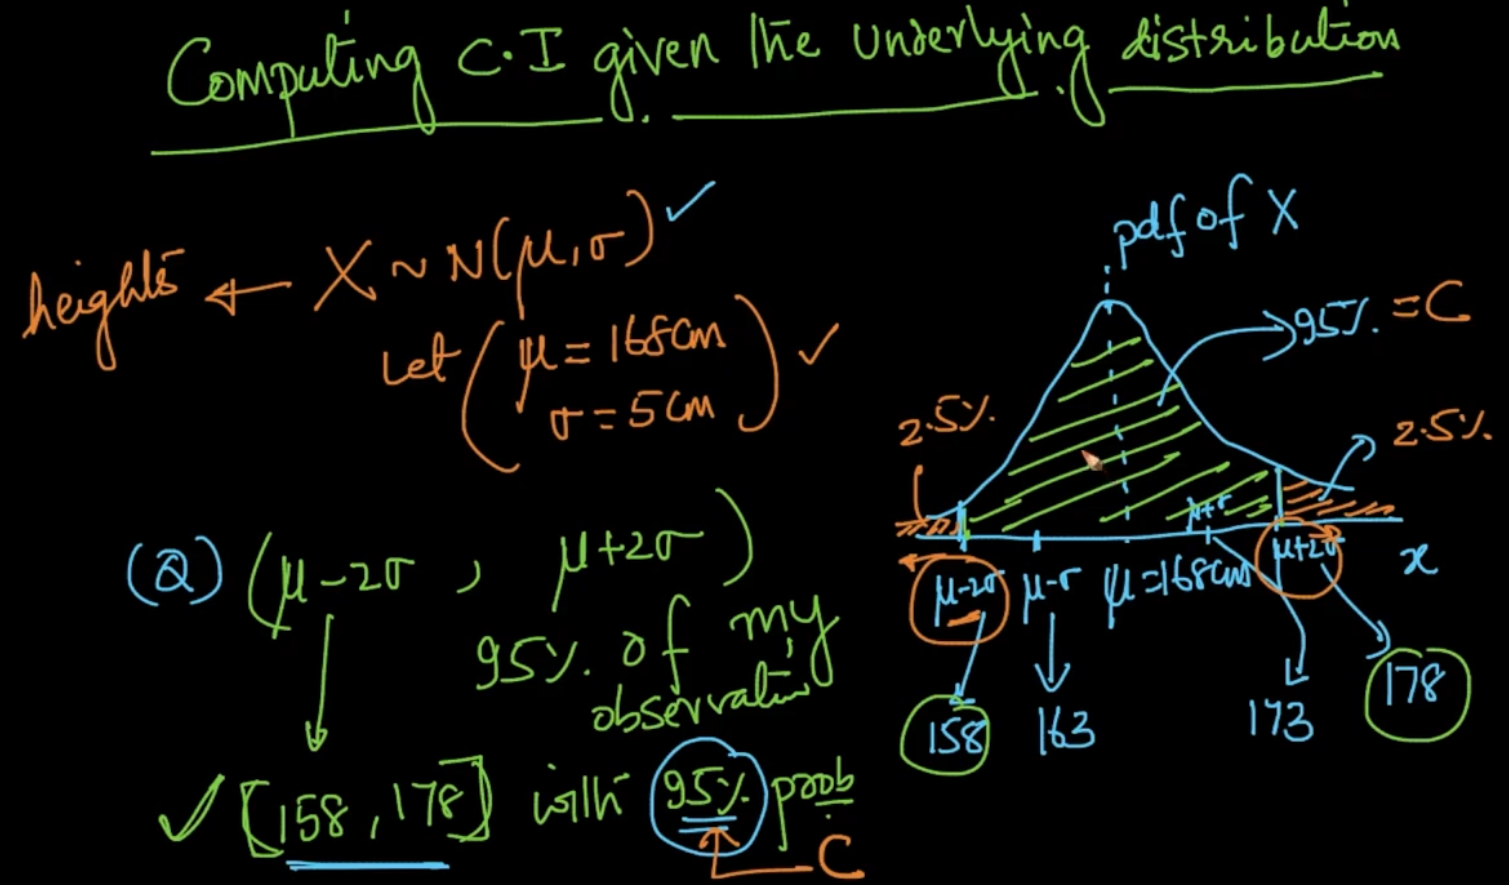 Computing C.I given the underlying distribution
heights ← X ~ N(μ, σ) ✓
Let ( μ = 168cm
σ = 5cm ) ✓
(Q) (μ-2σ , μ+2σ)
95% of my
observation
✓ [158, 178] with 95% prob
C
pdf of X
95% = C
2.5%
2.5%
μ+σ
μ-2σ μ-σ μ=168cm μ+2σ x
158 163 173 178